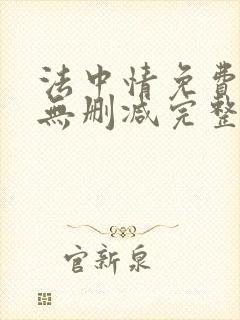 法中情免費
無刪减完整
官新泉